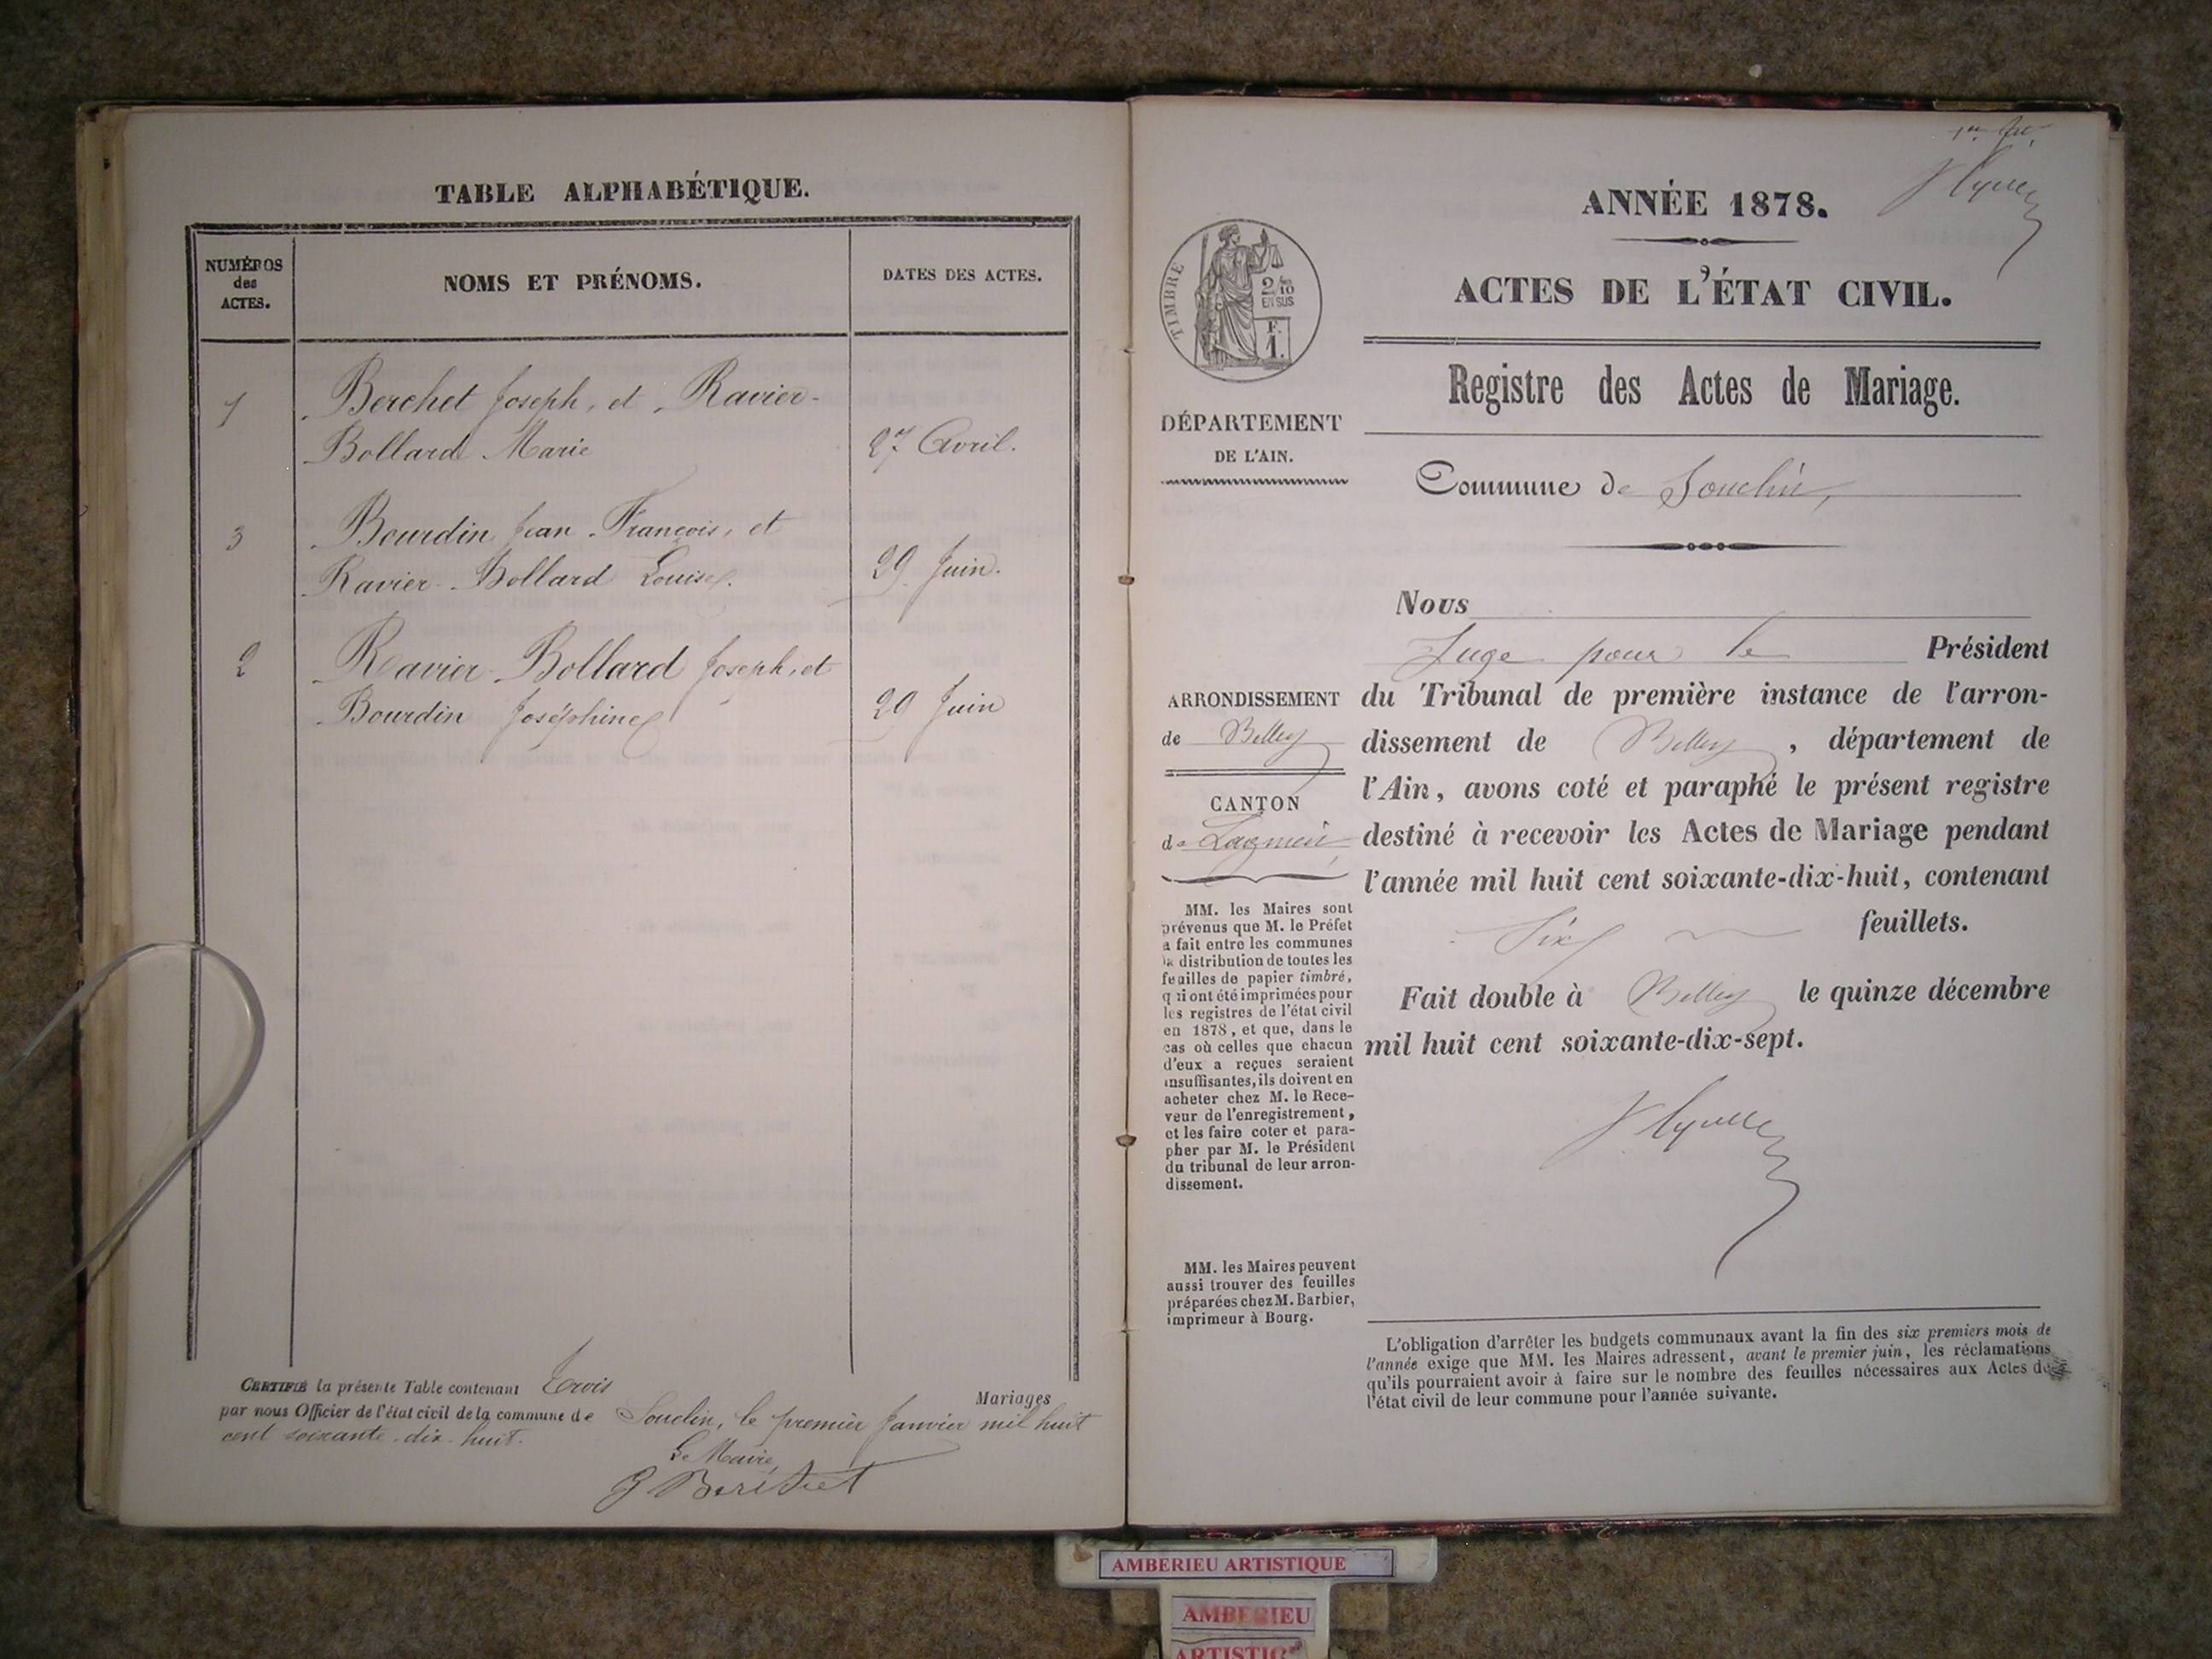 TABLE ALPHABÉTIQUE.
NUMÉROS
des
ACTES.
NOMS ET PRÉNOMS.
DATES DES ACTES.
1
Berchet Joseph, et Ravier-
Bollard Marie
27 Avril.
3
Bourdin Jean François, et
Ravier-Bollard Louise.
29 Juin.
2
Ravier-Bollard Joseph, et
Bourdin Joséphine
29 Juin
CERTIFIÉ la présente Table contenant Trois Mariages
par nous Officier de l'état civil de la commune de Souclin, le premier Janvier mil huit
cent soixante-dix-huit.
Le Maire,
ANNÉE 1878.
ACTES DE L'ÉTAT CIVIL.
Registre des Actes de Mariage.
TIMBRE
2/10
EN SUS
F.
1.
DÉPARTEMENT
DE L'AIN.
Commune de Souclin,
Nous
Juge pour le Président
du Tribunal de première instance de l'arron-
dissement de Belley, département de
l'Ain, avons coté et paraphé le présent registre
destiné à recevoir les Actes de Mariage pendant
l'année mil huit cent soixante-dix-huit, contenant
Six feuillets.
Fait double à Belley le quinze décembre
mil huit cent soixante-dix-sept.
ARRONDISSEMENT
de Belley
CANTON
de Lagnieu
MM. les Maires sont
prévenus que M. le Préfet
a fait entre les communes
la distribution de toutes les
feuilles de papier timbré,
qui ont été imprimées pour
les registres de l'état civil
en 1878, et que, dans le
cas où celles que chacun
d'eux a reçues seraient
insuffisantes, ils doivent en
acheter chez M. le Rece-
veur de l'enregistrement,
et les faire coter et para-
pher par M. le Président
du tribunal de leur arron-
dissement.
MM. les Maires peuvent
aussi trouver des feuilles
préparées chez M. Barbier,
imprimeur à Bourg.
L'obligation d'arrêter les budgets communaux avant la fin des six premiers mois de
l'année exige que MM. les Maires adressent, avant le premier juin, les réclamations
qu'ils pourraient avoir à faire sur le nombre des feuilles nécessaires aux Actes de
l'état civil de leur commune pour l'année suivante.
AMBERIEU ARTISTIQUE
AMBERIEU
ARTISTIQ